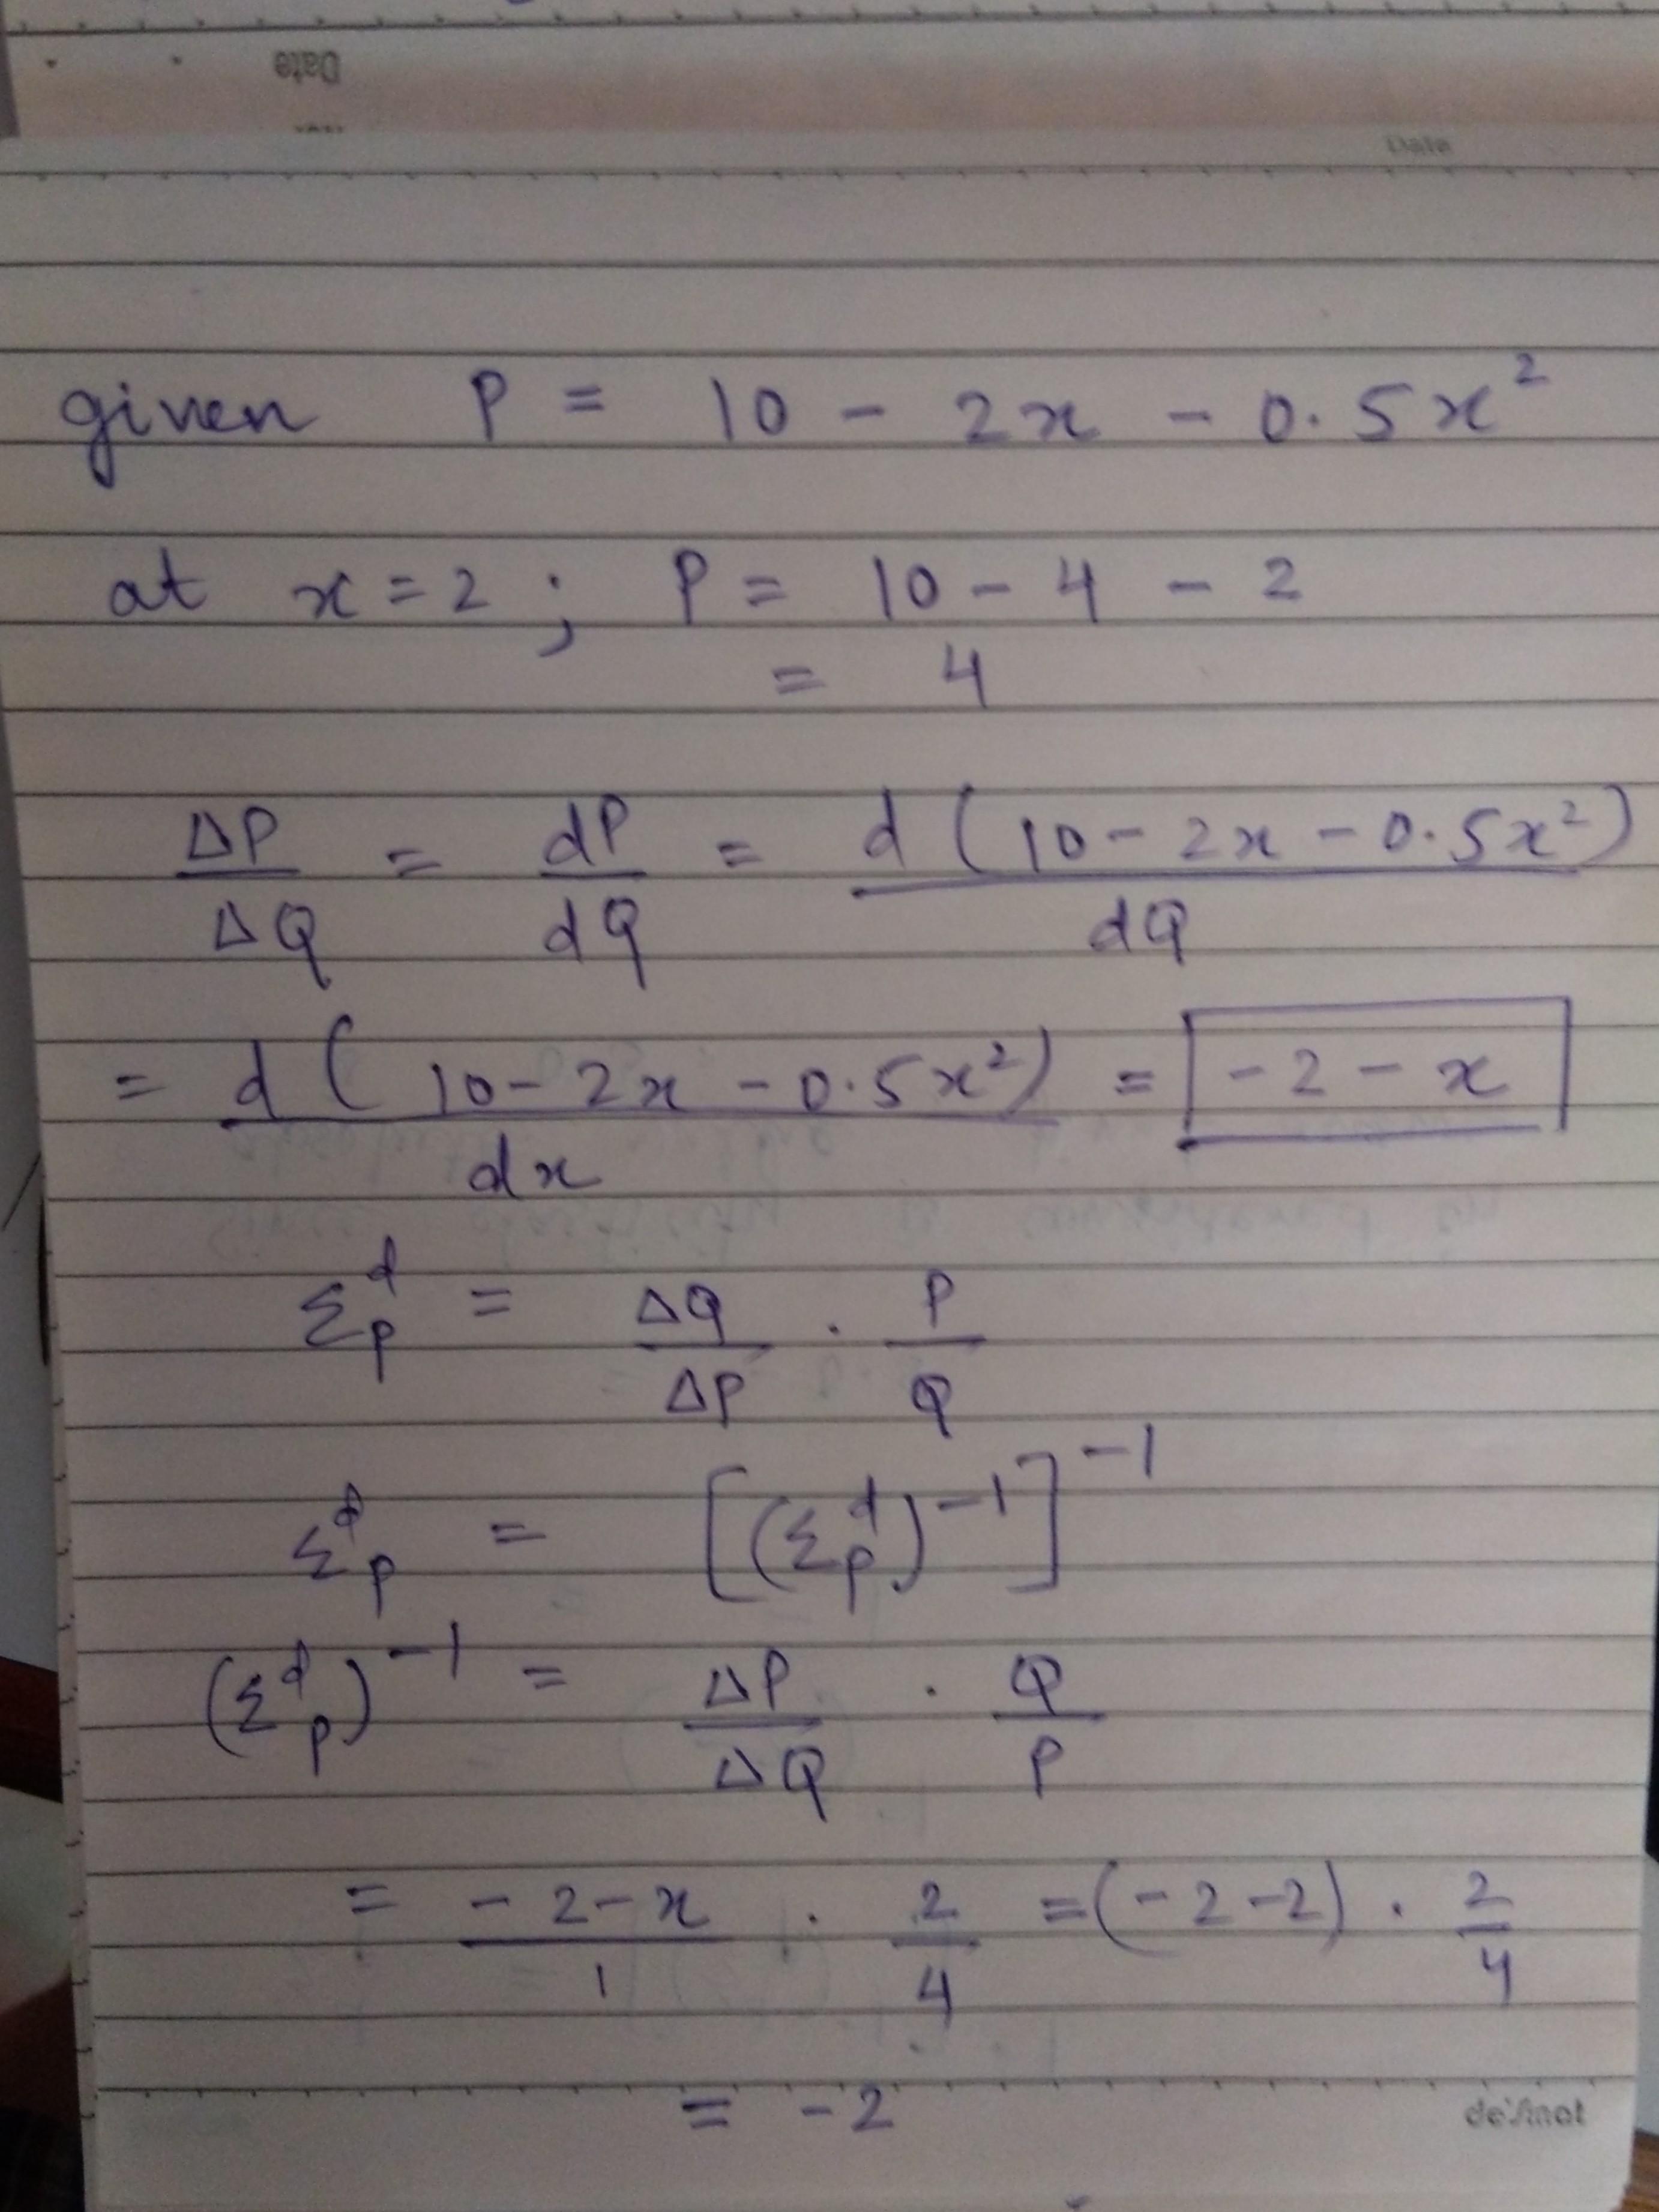 Date
Date
given P = 10 - 2x - 0.5x²
at x = 2 ; P = 10 - 4 - 2
= 4
ΔP/ΔQ = dP/dQ = d(10 - 2x - 0.5x²)/dQ
= d(10 - 2x - 0.5x²)/dx = -2 - x
Σᵈₚ = ΔQ/ΔP · P/Q
Σᵈₚ = [(Σᵈₚ)⁻¹]⁻¹
(Σᵈₚ)⁻¹ = ΔP/ΔQ · Q/P
= -2-x/1 · 2/4 = (-2-2) · 2/4
= -2